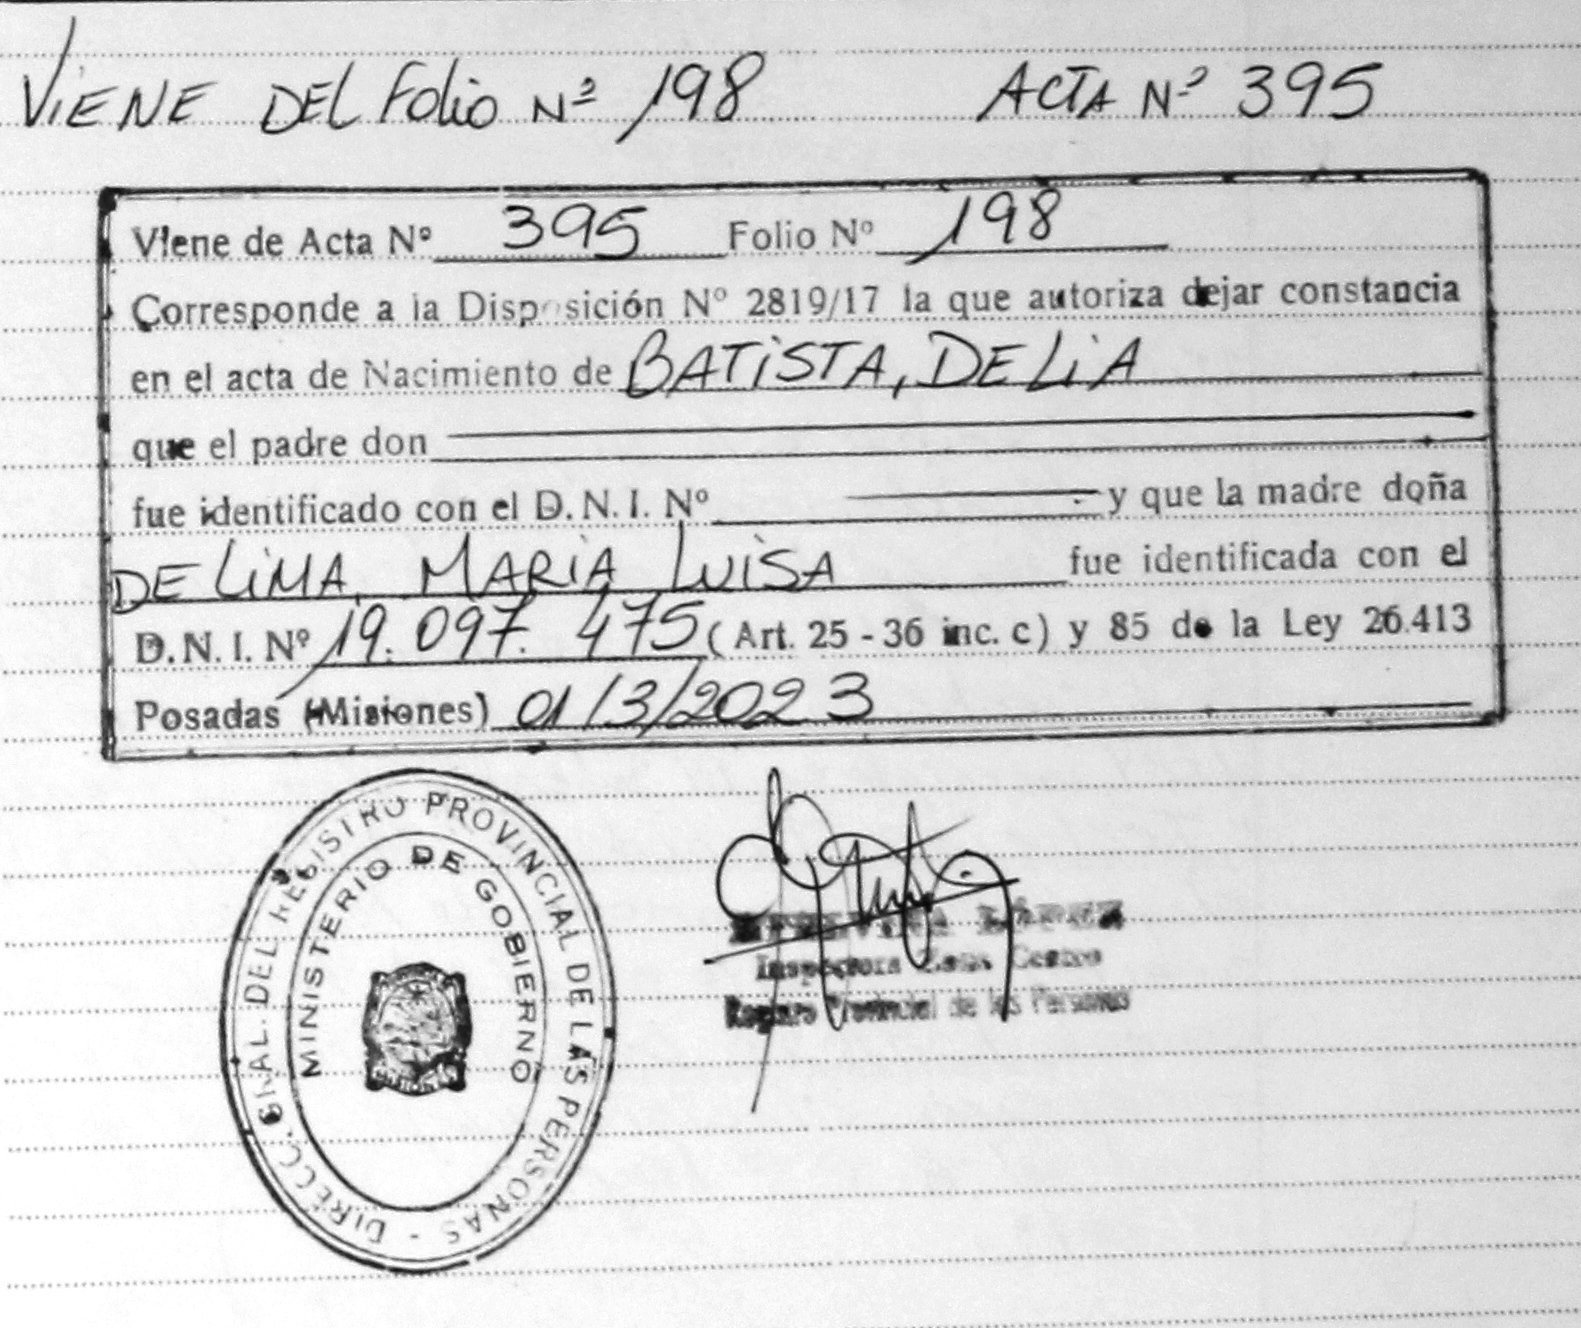 VIENE DEL FOLIO Nº 198 ACTA Nº 395
Viene de Acta Nº 395 Folio Nº 198
Corresponde a la Disposición Nº 2819/17 la que autoriza dejar constancia
en el acta de Nacimiento de BATISTA, DELIA
que el padre don
fue identificado con el D.N.I. Nº y que la madre doña
DE LIMA, MARIA LUISA fue identificada con el
D.N.I. Nº 19.097.475 (Art. 25 - 36 inc. c) y 85 de la Ley 26.413
Posadas (Misiones) 01/3/2023
DIRECC. GRAL. DEL REGISTRO PROVINCIAL DE LAS PERSONAS -
MINISTERIO DE GOBIERNO
Inspectora Centro
Registro Provincial de las Personas